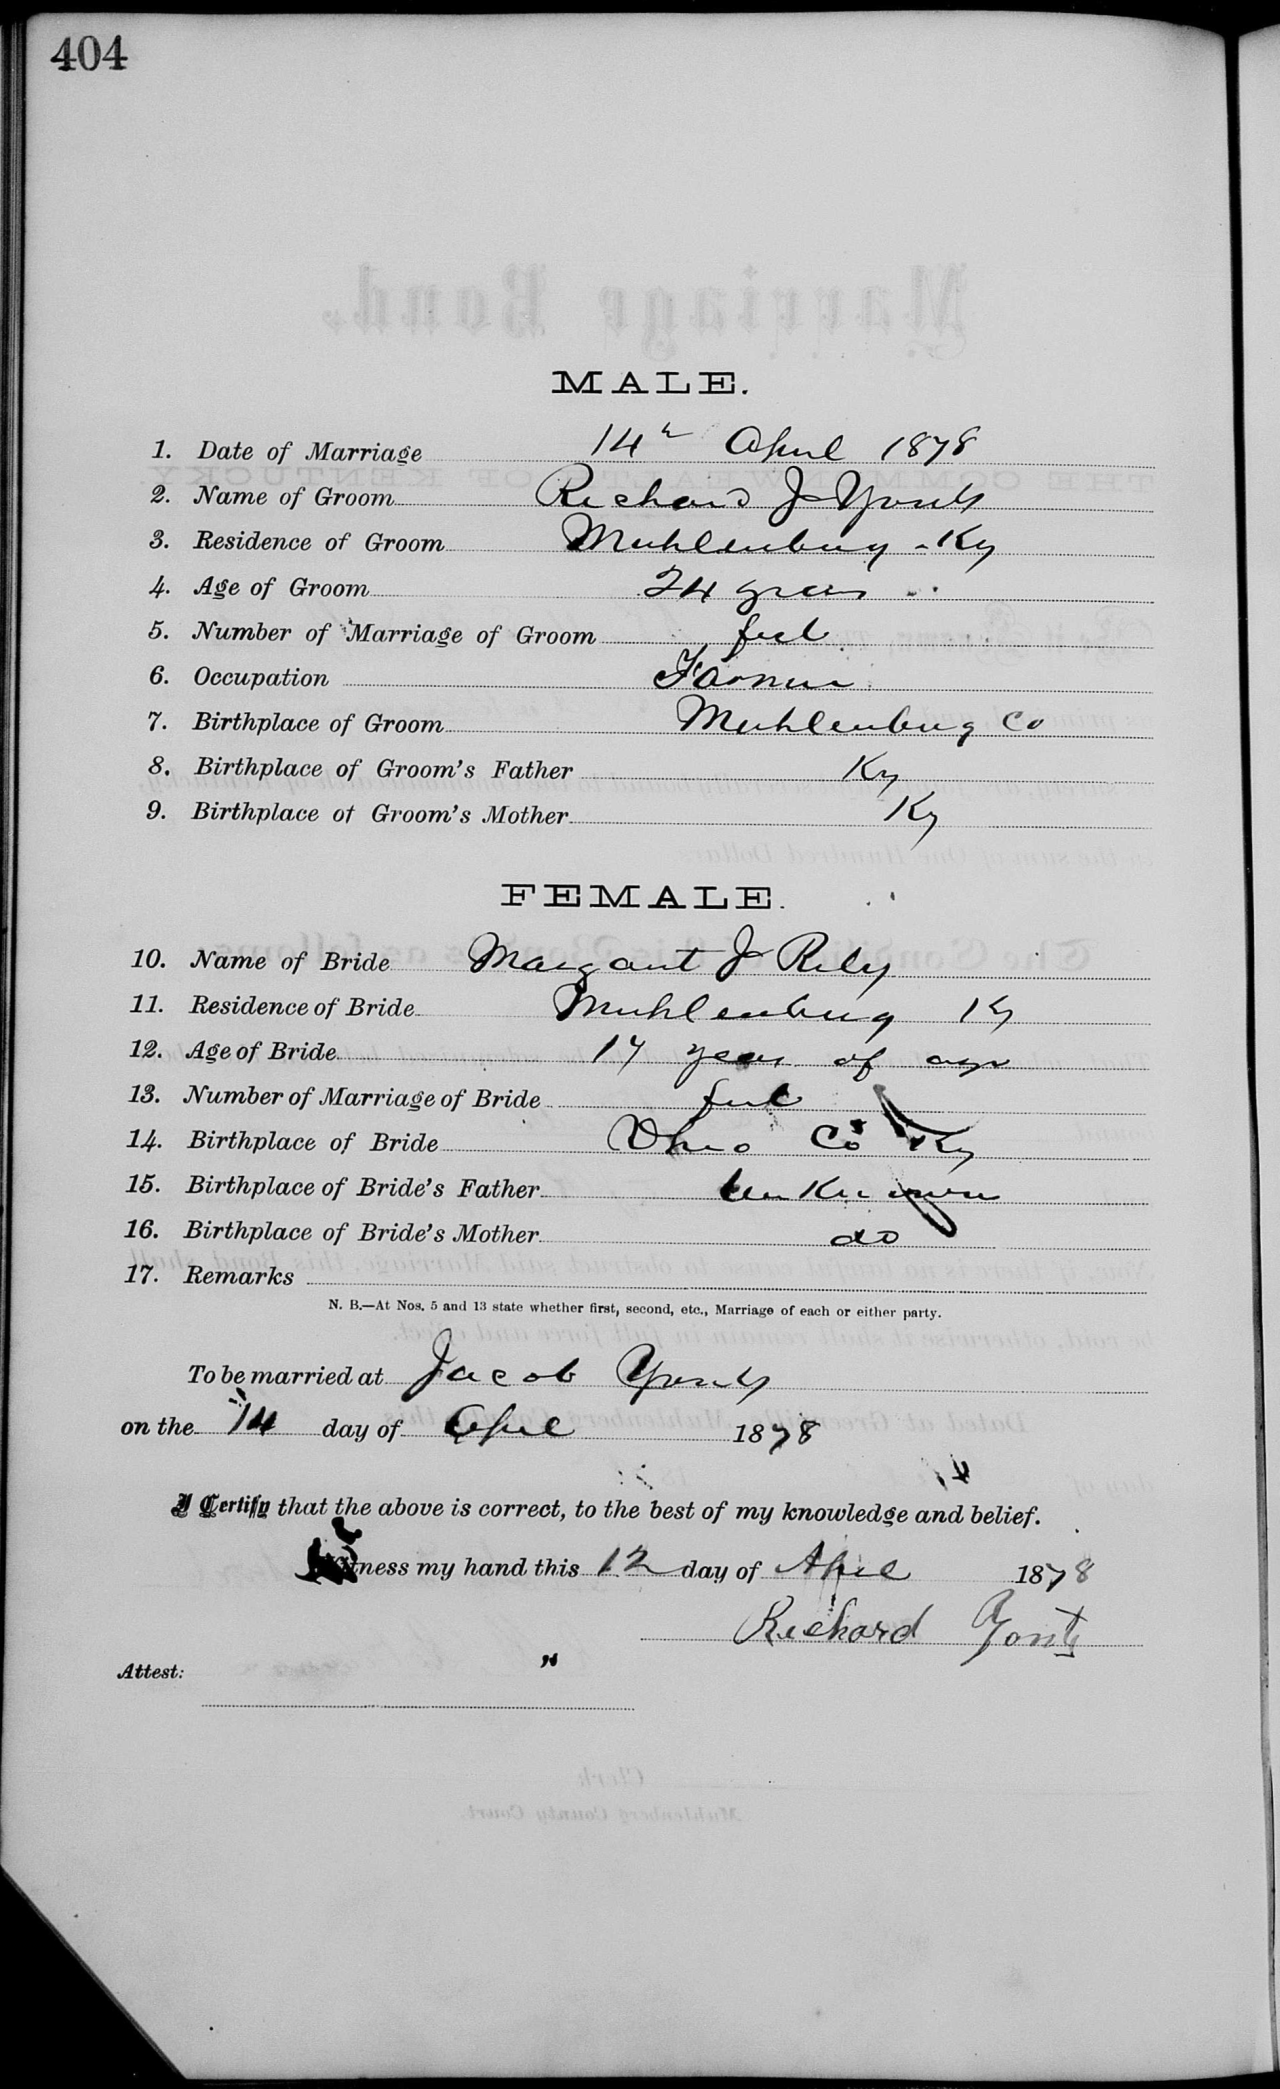 404
MALE.
1. Date of Marriage 14th April 1878
2. Name of Groom Richard J Yonts
3. Residence of Groom Muhlenburg - Ky
4. Age of Groom 24 years
5. Number of Marriage of Groom first
6. Occupation Farmer
7. Birthplace of Groom Muhlenburg Co
8. Birthplace of Groom's Father Ky
9. Birthplace of Groom's Mother Ky
FEMALE.
10. Name of Bride Margaret J Rily
11. Residence of Bride Muhlenburg Ky
12. Age of Bride 17 years of age
13. Number of Marriage of Bride first
14. Birthplace of Bride Ohio Co Ky
15. Birthplace of Bride's Father Unknown
16. Birthplace of Bride's Mother do
17. Remarks
N. B.—At Nos. 5 and 13 state whether first, second, etc., Marriage of each or either party.
To be married at Jacob Yonts
on the 14 day of April 1878
I Certify that the above is correct, to the best of my knowledge and belief.
Witness my hand this 12 day of April 1878
Richard Yonts
Attest: